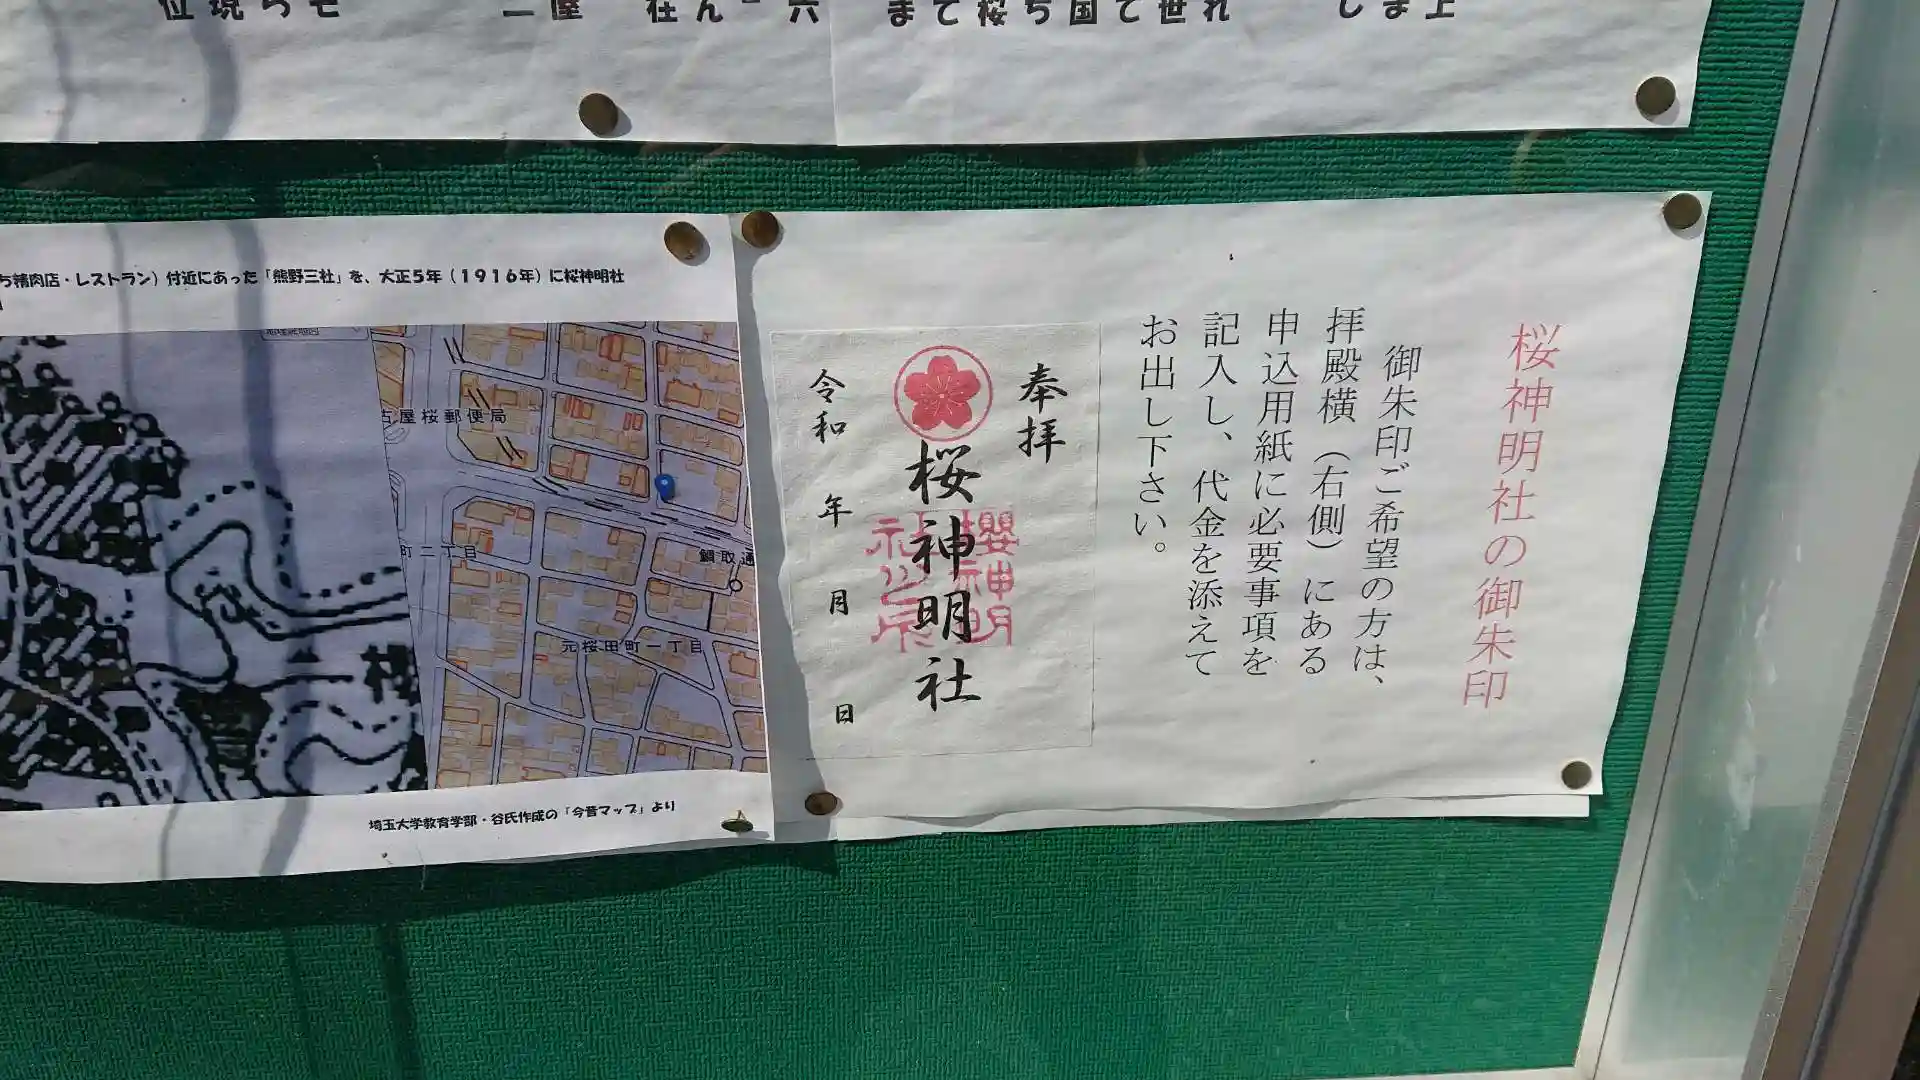 桜神明社の御朱印
御朱印ご希望の方は、
拝殿横（右側）にある
申込用紙に必要事項を
記入し、代金を添えて
お出し下さい。
奉拝
桜神明社
櫻神明
令和 年 月 日
ち精肉店・レストラン）付近にあった「熊野三社」を、大正５年（１９１６年）に桜神明社
古屋桜郵便局
町二丁目
鯛取通
元桜田町一丁目
村
埼玉大学教育学部・谷氏作成の「今昔マップ」より